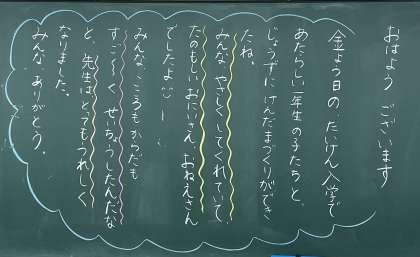 おはよう ございます
金よう日の、たいけん入学で
あたらしい一年生の子たちと、
じょうずにけんだまづくりができ
たね。
みんな、やさしくしてくれていて、
たのもしいおにいさん、おねえさん
でしたよ
みんな、こころもからだも
すご〜く せいちょうしたんだな
と、先生はとってもうれしく
なりました。
みんな、ありがとう。